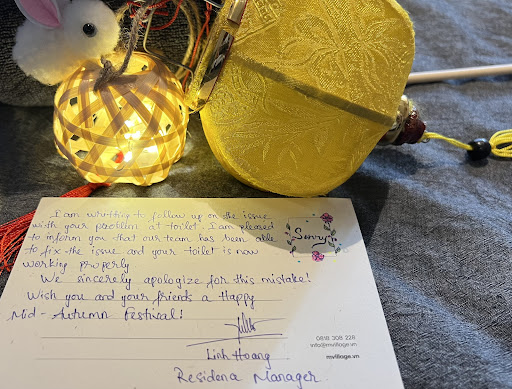 I am writing to follow up on the issue
with your problem at toilet. I am pleased
to inform you that our team has been able
to fix the issue and your toilet is now
working properly
We sincerely apologize for this mistake!
Wish you and your friends a Happy
Mid-Autumn Festival!
Sorry
Linh Hoang
Residena Manager
0818 308 228
info@mvillage.vn
mvillage.vn